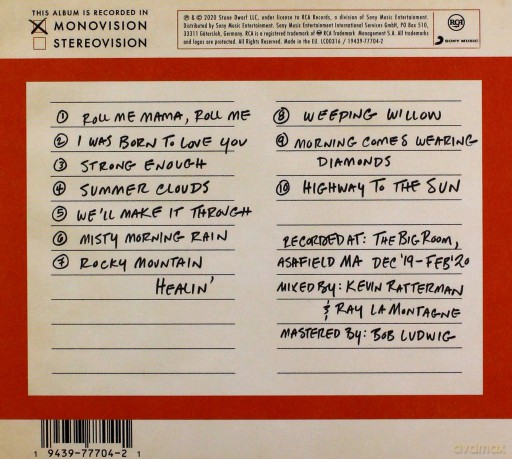 THIS ALBUM IS RECORDED IN
MONOVISION
STEREOVISION
℗ & © 2020 Stone Dwarf LLC, under license to RCA Records, a division of Sony Music Entertainment.
Distributed by Sony Music Entertainment. Sony Music Entertainment International Services GmbH, PO Box 510,
33311 Gütersloh, Germany. RCA is a registered trademark of RCA Trademark Management S.A. All trademarks
and logos are protected. All Rights Reserved. Made in the EU. LC00316 / 19439-77704-2
RCA
SONY MUSIC
① ROLL ME MAMA, ROLL ME
② I WAS BORN TO LOVE YOU
③ STRONG ENOUGH
④ SUMMER CLOUDS
⑤ WE'LL MAKE IT THROUGH
⑥ MISTY MORNING RAIN
⑦ ROCKY MOUNTAIN
HEALIN'
⑧ WEEPING WILLOW
⑨ MORNING COMES WEARING
DIAMONDS
⑩ HIGHWAY TO THE SUN
RECORDED AT: THE BIG ROOM,
ASAFIELD MA DEC '19 - FEB '20
MIXED BY: KEVIN RATTERMAN
& RAY LAMONTAGNE
MASTERED BY: BOB LUDWIG
1 9439-77704-2 1
avamax